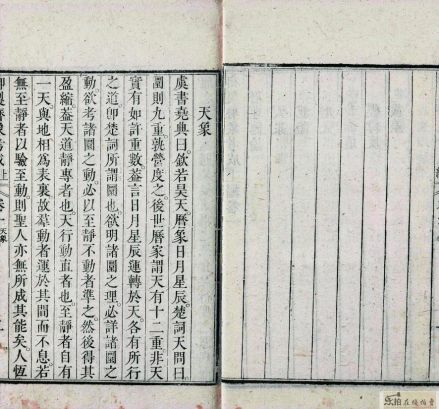 天象
虞書堯典曰欽若昊天曆象日月星辰楚詞天問曰
圜則九重孰營度之後世曆家謂天有十二重非天
實有如許重數蓋言日月星辰運轉於天各有所行
之道卽楚詞所謂圜也欲明諸圜之理必詳諸圜之
動欲考諸圜之動必以至靜不動者準之然後得其
盈縮蓋天道靜專者也天行動直者也至靜者自有
一天與地相為表裏故羣動者運於其間而不息若
無至靜者以驗至動則聖人亦無所成其能矣人恆
御製曆象考成上 卷一 天象
乐拍在线拍卖